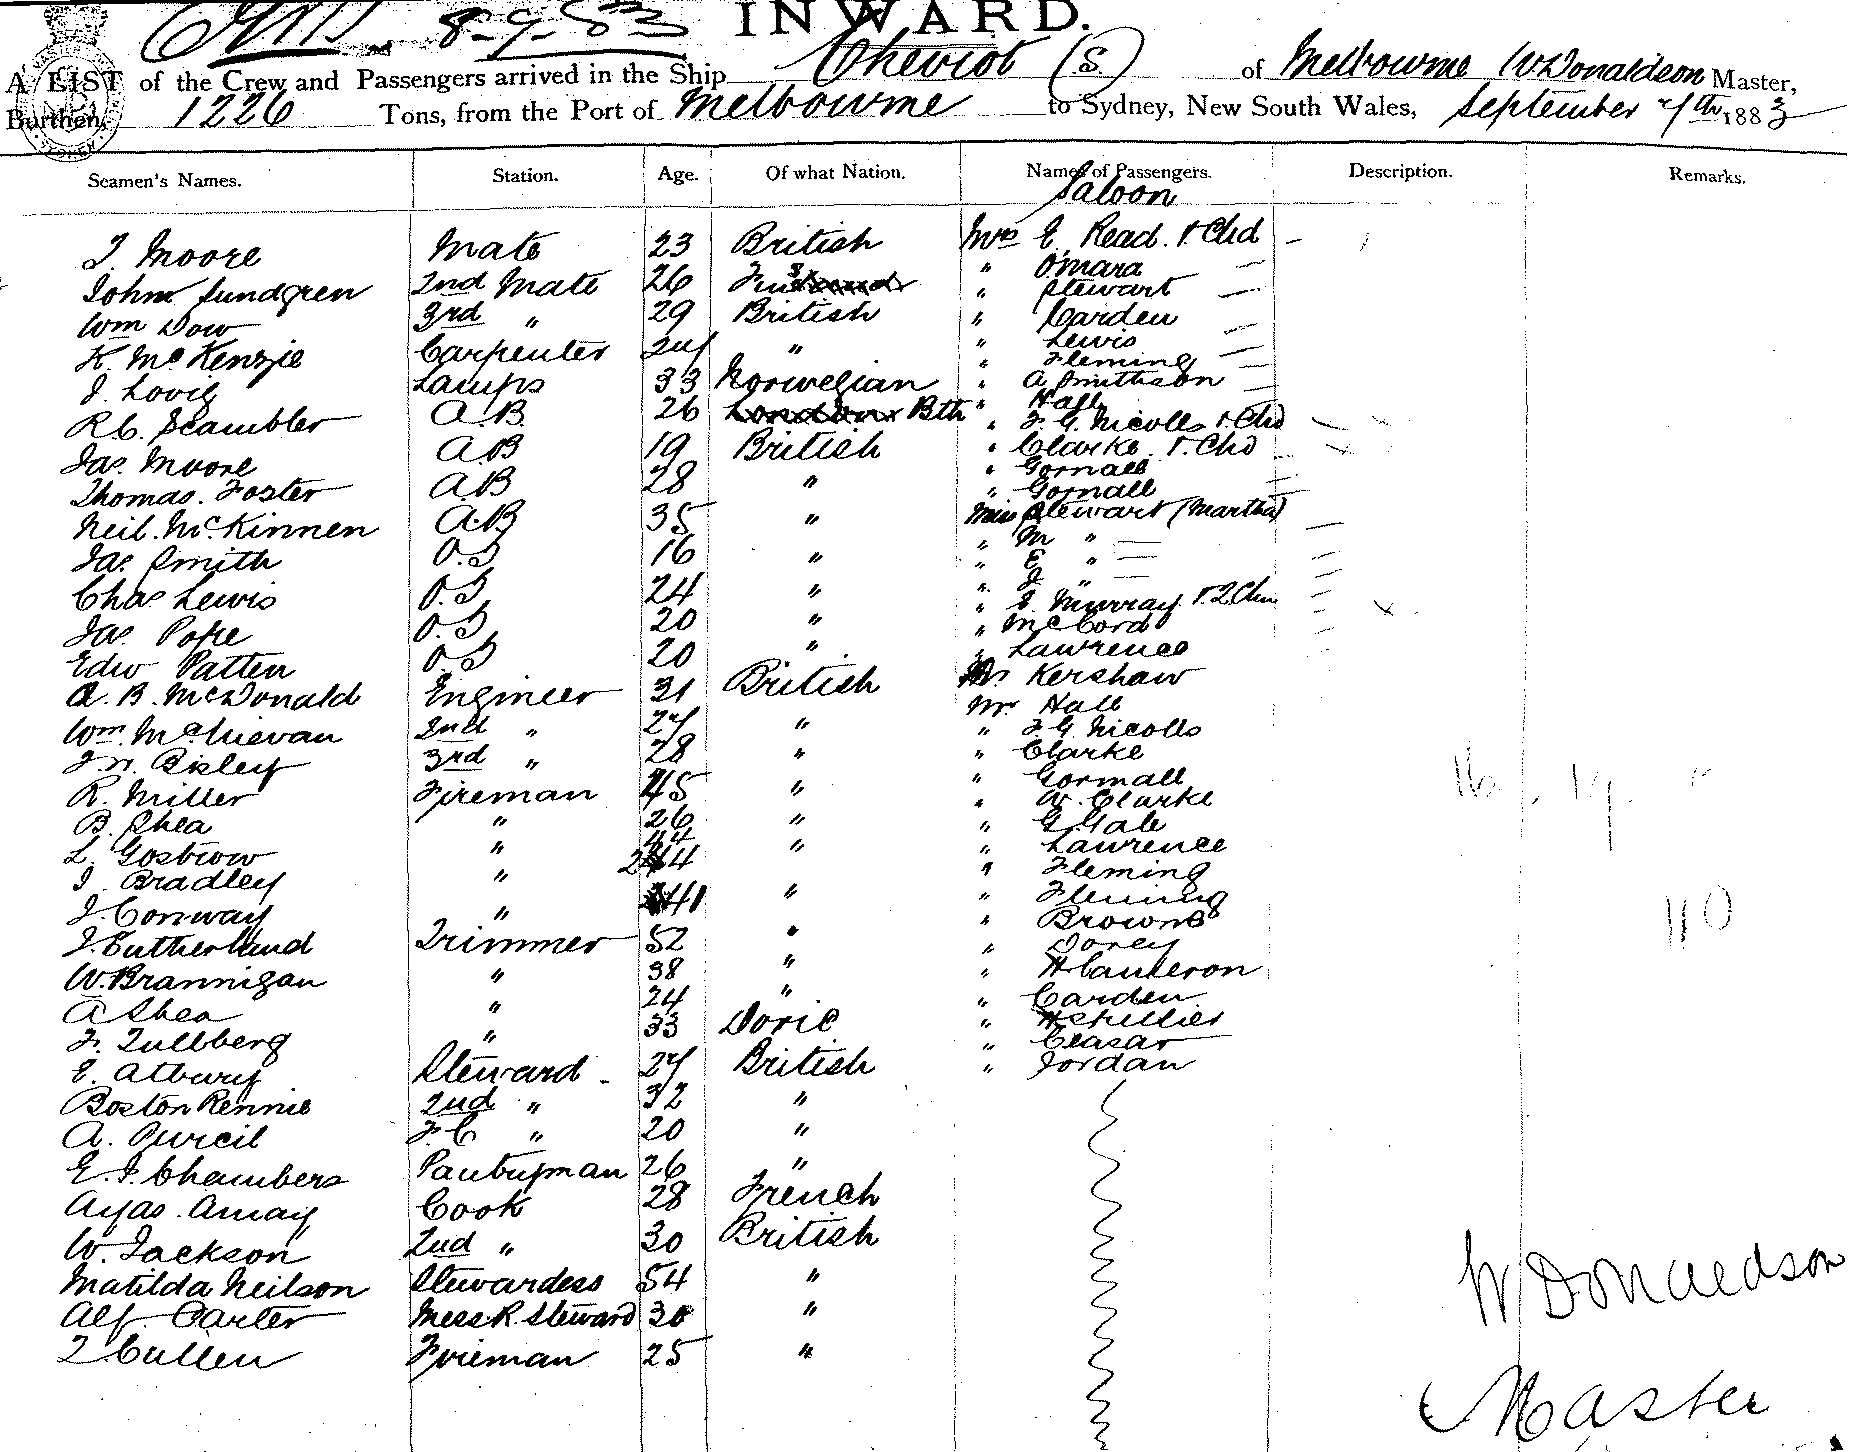 8-9-83 INWARD.
A LIST of the Crew and Passengers arrived in the Ship Cheviot (S) of Melbourne W Donaldson Master,
Burthen, 1226 Tons, from the Port of Melbourne to Sydney, New South Wales, September 7th 1883
Seamen's Names. Station. Age. Of what Nation. Names of Passengers. Description. Remarks.
Saloon
T. Moore Mate 23 British Mrs E. Read. & Chd
John Lundgren 2nd Mate 26 " Omara
" Stewart
Wm Dow 3rd " 29 British " Carden
K. McKenzie Carpenter 27 " " Lewis
" Fleming
J. Lovig Lamps 33 Norwegian " A Smithson
R C. Scambler A.B. 26 Bth " Hall
" F. G. Nicolls & Chd
Jas. Moore A.B 19 British " Clarke & Chd
" Gornall
Thomas. Foster A.B 28 " " Gornall
Neil. McKinnen A.B 35 " Miss Stewart (Martha)
" M "
Jas. Smith O.S 16 " " E "
" J "
Chas Lewis O.S 24 " " E. Murray & 2 Chn
Jas Pope O.S 20 " " McCord
Edw Patten O.S 20 " " Lawrence
A. B. McDonald Engineer 31 British Mr Kershaw
Mr Hall
Wm. 2nd " 27 " " F. G. Nicolls
Bisley 3rd " 28 " " Clarke
R. Miller Fireman 45 " " Gornall
" W. Clarke
B. Shea " 26 " " G. Gale
L. Gostrow " 44 " " Lawrence
J. Bradley " " Fleming
J. Conway " 41 " " Fleming
" Browne
J. Sutherland Trimmer 52 " " Dorey
W. Brannigan " 38 " " H Cameron
A Shea " 24 " " Carden
F. Tullberg " 33 Doric "
" Ceasar
E. Atbury Steward 27 British " Jordan
Boston Rennie 2nd " 32 "
A. Purcil F.C " 20 "
E. J. Chambers Pantryman 26 "
Ayas. Amay Cook 28 French
W. Jackson 2nd " 30 British
Matilda Neilson Stewardess 54 "
Alf. Carter Mess R. Steward 30 "
T. Cullen Fireman 25 "
W Donaldson
Master